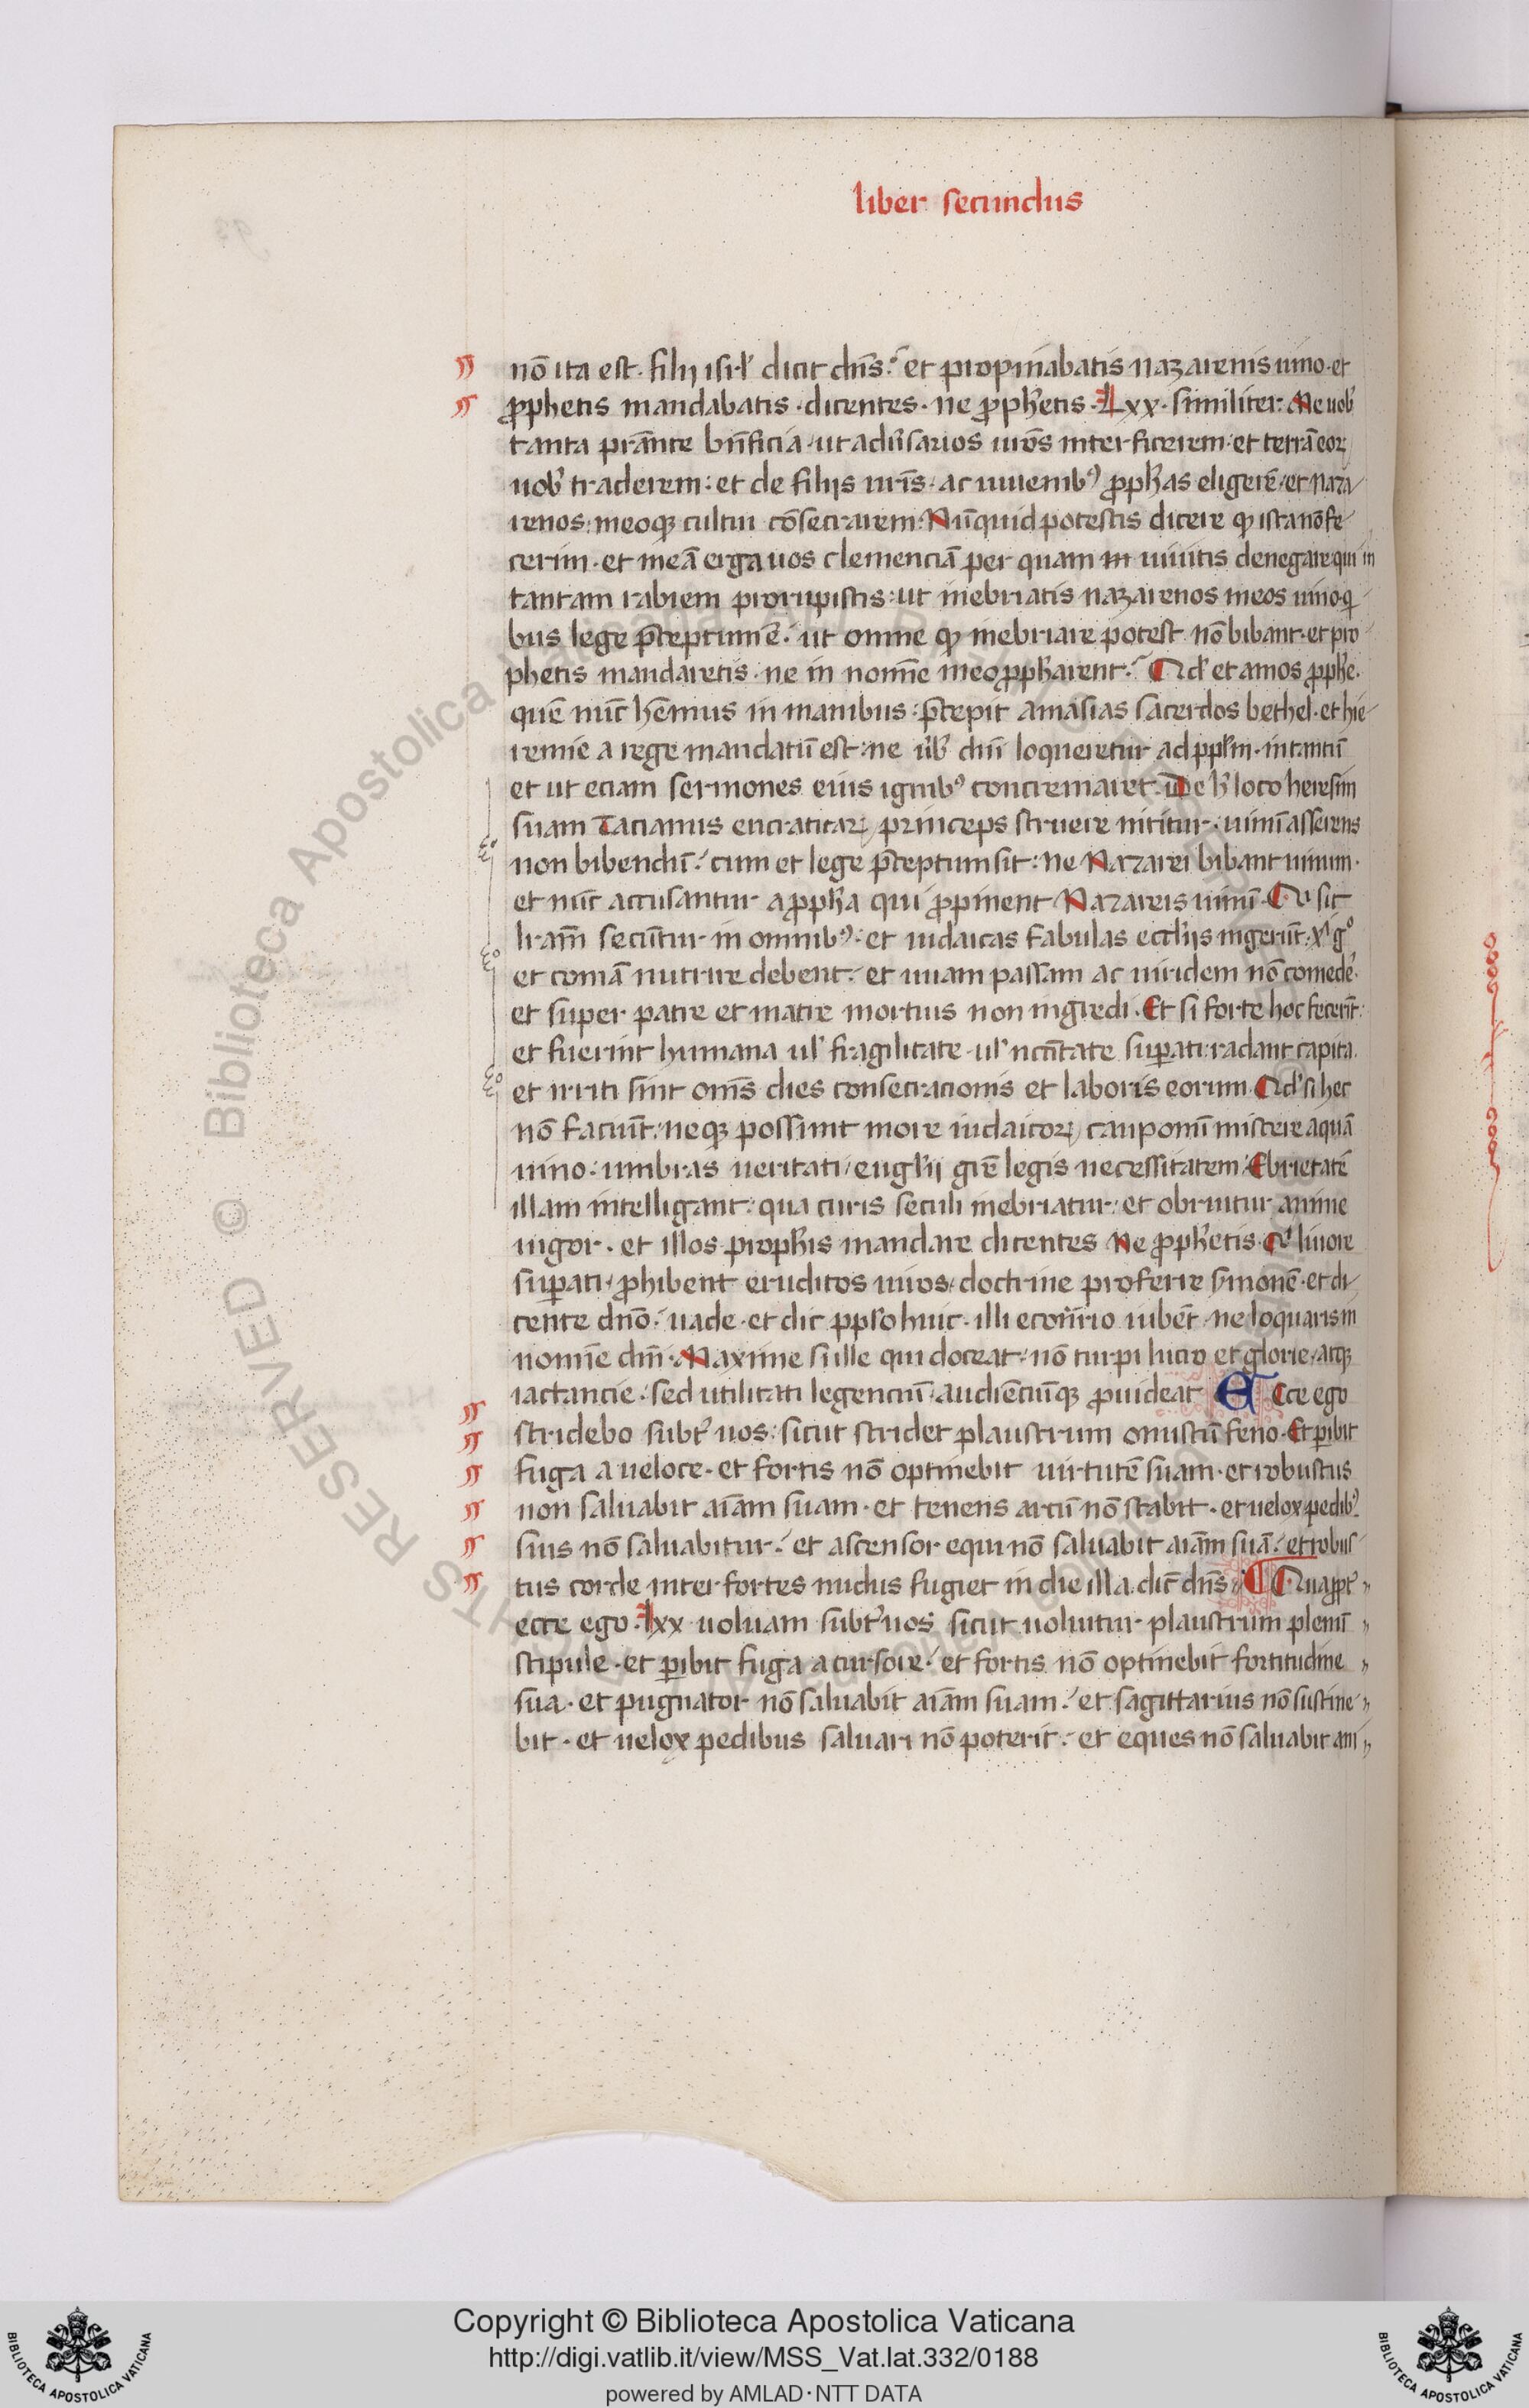 liber secundus
nō ita est. filij isrl' dicit dn̄s.' et propinabatis nazarenis uino. et
ꝓphetis mandabatis. dicentes. ne ꝓph'etis. Lxx. similiter. Ne uob'
tanta pr̄ante bn̄ficia. ut adu'sarios uīos interficerem. et terrā eoꝝ
uob' traderem: et de filijs uīis. ac iuuenib9 ꝓph'as eligerē. et naza
renos. meoqꝫ cultui cōsecrarem. Nūquid potestis dicere ꝙ ista nō fe
cerim. et meā erga uos clemenciā per quam uiuitis denegare qui in
tantam rabiem prorupistis: ut inebriatis nazarenos meos uino. q
bus lege p̄ceptum ē. ut omne ꝙ inebriare potest nō bibant. et pro
phetis mandaretis. ne in nomīe meo ꝓph'arent. Qd' et amos ꝓph'e.
quē nūc h'emus in manibus: p̄cepit amasias sacerdos bethel. et hie
remie a rege mandatū est: ne u'b' dn̄i loqueretur ad ppl'm. in tantū
et ut eciam sermones eius ignib9 concremaret. De h' loco heresim
suam Tacianus encratitaꝝ princeps struere nititur. uinū asserens
non bibendū. cum et lege p̄ceptum sit: ne Nazarei bibant uinum.
et nūc accusantur a ꝓph'a qui ꝓpinent Nazareis uinū. Qi sic
lr̄am secūtur in omnib9. et iudaicas fabulas eccl'ijs ingerūt. g°
et comā nutrire debent. et uuam passam ac uiridem nō comede'.
et super patre et matre mortuis non ingredi. Et si forte hoc fecerīt.
et fuerint humana ul' fragilitate. ul' nccītate suꝑati: radant capita.
et irriti sint om̄s dies consecracionis et laboris eorum. Qd' si hec
nō faciūt. neqꝫ possunt more iudaicoꝝ cauponū miscere aquā
uino. umbras ueritati. eugl'ij gr̄e legis necessitatem. Ebrietatē
illam intelligant: qua curis seculi inebriatur. et obruitur anime
uigor. et illos proph'is mandare dicentes Ne ꝓph'etis. Qi liuore
suꝑati. ꝓhibent eruditos uiros. doctrine proferre s'monē. et di
cente dn̄o. uade. et dic pplo huic. illi econ̄rio iubēt. ne loquaris in
nomīe dn̄i. Maxime si ille qui doceat. nō turpi lucro et glorie. atqꝫ
iactancie. sed utilitati legencium. audiēciūqꝫ ꝓuideat Ecce ego
stridebo subt' uos. sicut stridet plaustrum onustū feno. Et ꝑibit
fuga a ueloce. et fortis nō optinebit uirtutē suam. et robustus
non saluabit aīam suam. et tenens arcū nō stabit. et uelox pedib9
suis nō saluabitur. et ascensor equi nō saluabit aīam suā. et robus
tus corde inter fortes nudus fugiet in die illa dic̄ dn̄s. Quaꝓpt'
ecce ego. Lxx uoluam subt' uos sicut uoluitur plaustrum plenū
stipule. et ꝑibit fuga a cursore. et fortis nō optinebit fortitudine
sua. et pugnator nō saluabit aīam suam. et sagittarius nō sustine
bit. et uelox pedibus saluari nō poterit. et eques nō saluabit ani
Copyright © Biblioteca Apostolica Vaticana
http://digi.vatlib.it/view/MSS_Vat.lat.332/0188
powered by AMLAD·NTT DATA
BIBLIOTECA APOSTOLICA VATICANA
BIBLIOTECA APOSTOLICA VATICANA